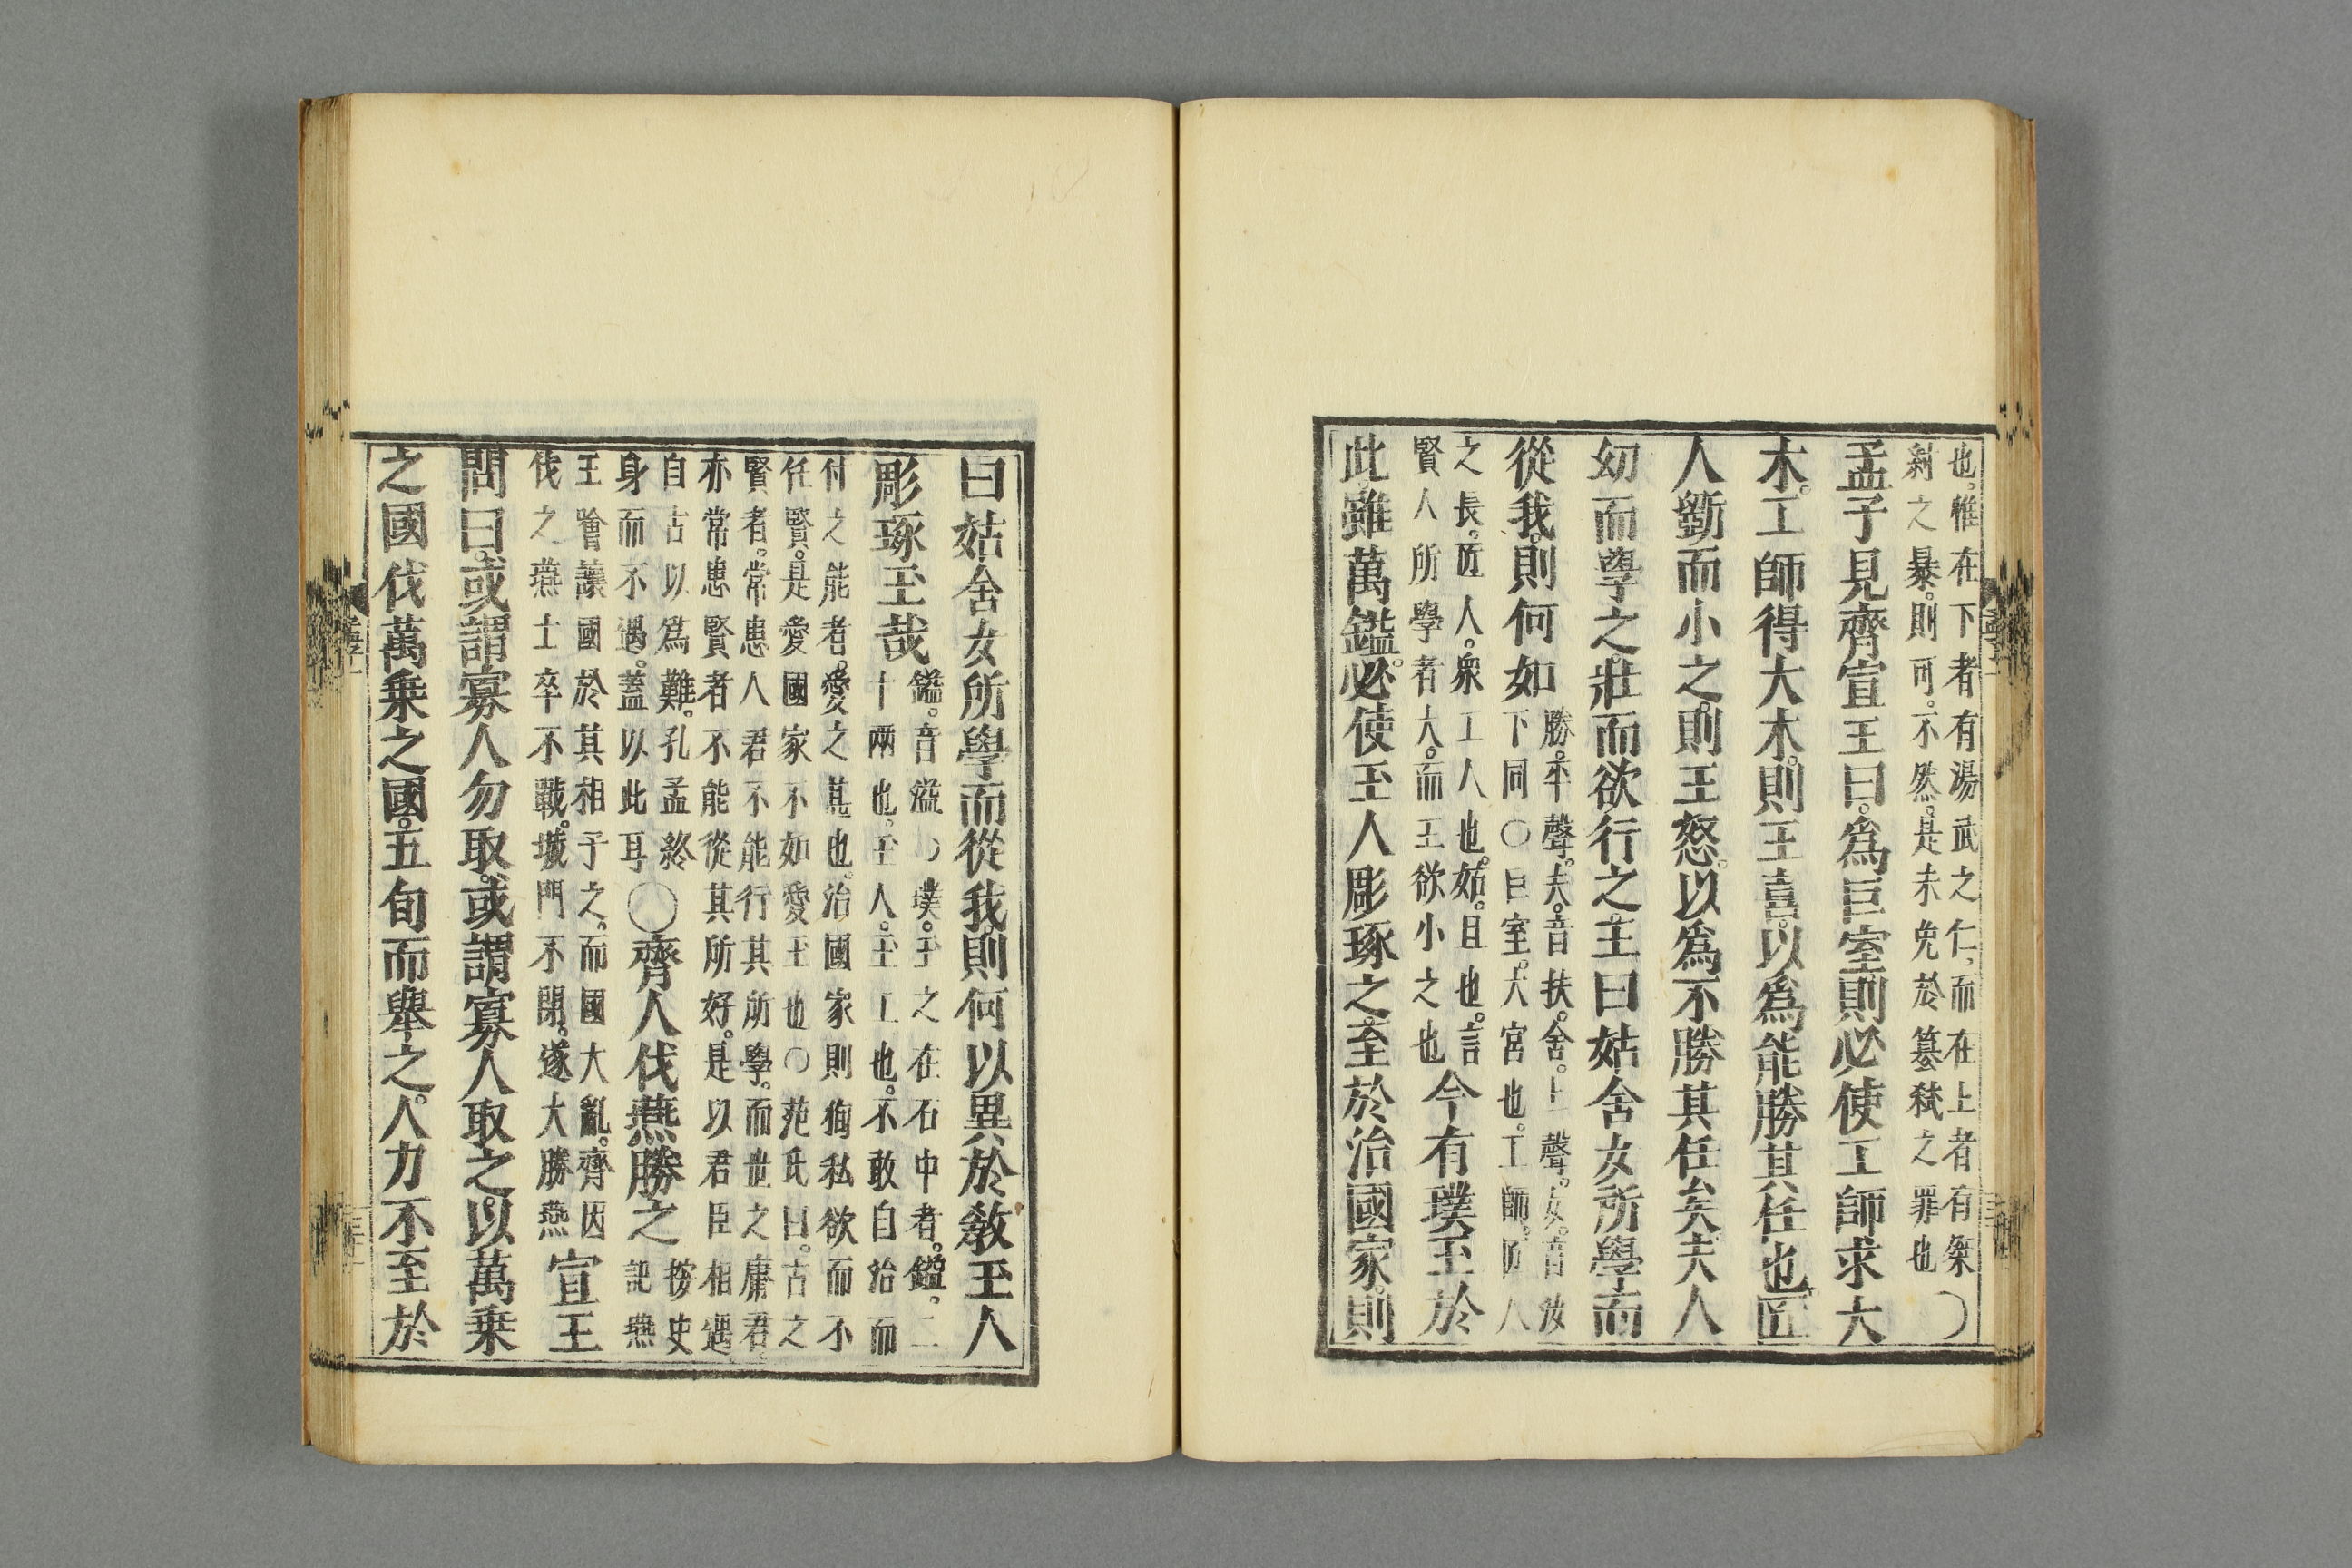 也。惟在下者有湯武之仁。而在上者有桀
紂之暴。則可。不然。是未免於簒弑之罪也○
孟子見齊宣王曰。爲巨室則必使工師求大
木。工師得大木。則王喜。以爲能勝其任也。匠
人斲而小之。則王怒。以爲不勝其任矣。夫人
幼而學之。壯而欲行之。王曰姑舍女所學而
從我。則何如
勝。平聲。夫。音扶。舍。上聲。女。音汝
下同○巨室。大宮也。工師。匠人
之長。匠人。衆工人也。姑。且也。言
賢人所學者大。而王欲小之也
今有璞玉於
此。雖萬鎰。必使玉人彫琢之。至於治國家。則
曰姑舍女所學而從我。則何以異於敎玉人
彫琢玉哉
鎰。音溢○璞。玉之在石中者。鎰。二
十兩也。玉人。玉工也。不敢自治而
付之能者。愛之甚也。治國家則狥私欲而不
任賢。是愛國家不如愛玉也○范氏曰。古之
賢者。常患人君不能行其所學。而世之庸君。
亦常患賢者不能從其所好。是以君臣相遇
自古以爲難。孔孟終
身而不遇。蓋以此耳
○齊人伐燕勝之
按史
記燕
王噲讓國於其相子之。而國大亂。齊因
伐之燕士卒不戰。城門不閉。遂大勝燕
宣王
問曰。或謂寡人勿取。或謂寡人取之。以萬乗
之國伐萬乗之國。五旬而舉之。人力不至於